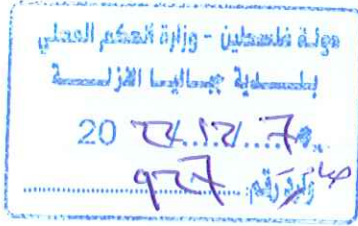 دولة فلسطين - وزارة الحكم المحلي
بلدية جباليا النزلة
20 22/12/7
وارد رقم 927